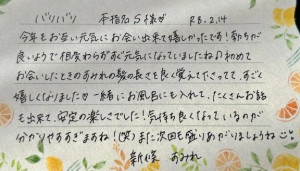 バリバリ 本指名S様が R8.2.14
今年もお互い元気にお会い出来て嬉しかったです!動きが
良いようで相変わらずすぐ元気になっていましたね♪初めて
お会いしたときのすみれの髪の長さを良く覚えてたさって、すごく
嬉しくなりました♡一緒にお風呂にも入れて、たくさんお話
も出来て、安定の楽しさでした!気持ち良くなっているのが
分かりやすすぎますね!(笑)また次回も盛りあがりましょうね
新人 すみれ